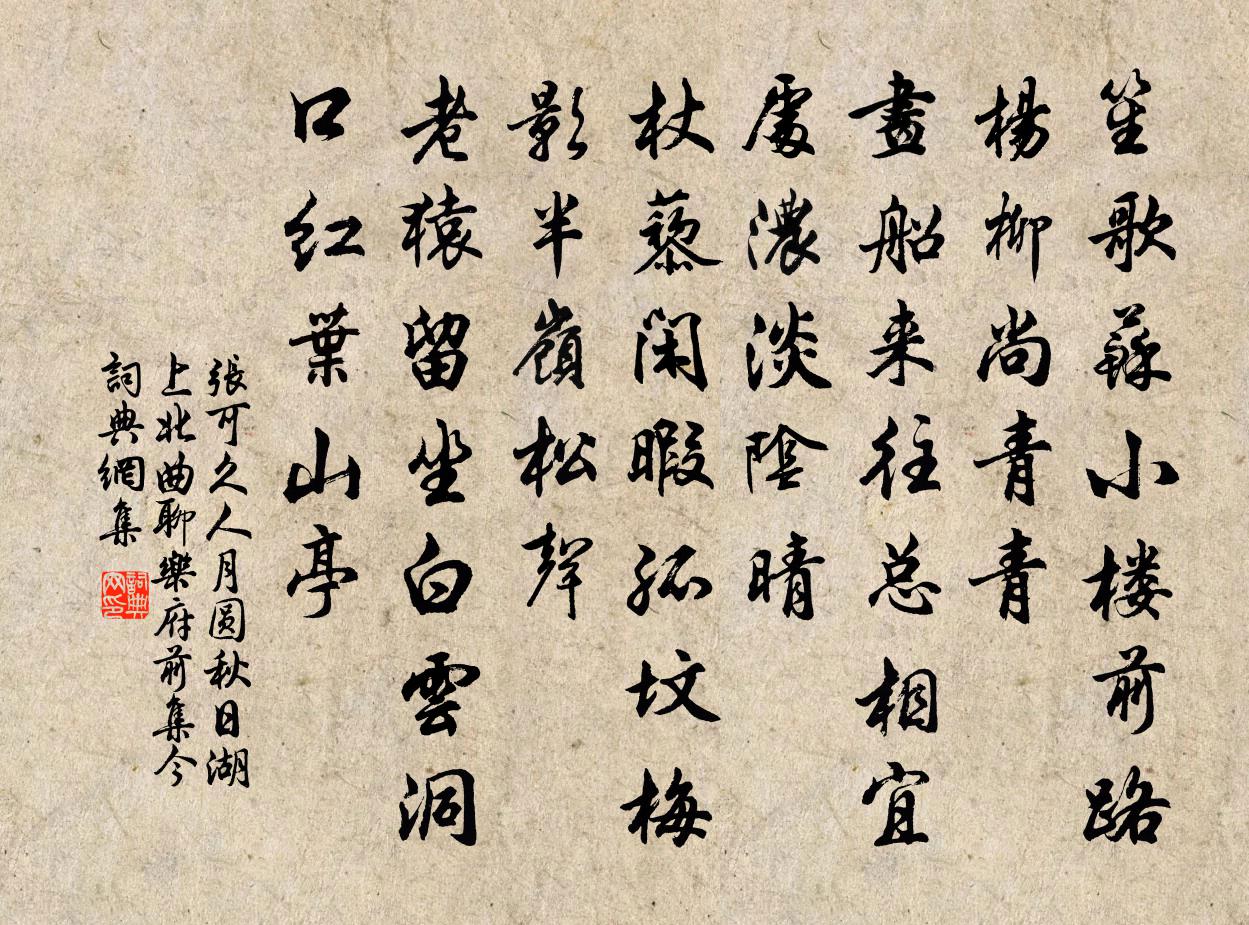 笙歌蘇小楼前路
楊柳尚青青
畫船来往总相宜
處濃淡陰晴
杖藜闲暇孤坟梅
影半嶺松聲
老猿留坐白雲洞
口红葉山亭
張可久人月圆秋日湖
上北曲聊樂府前集今
詞典網集
詞典网印